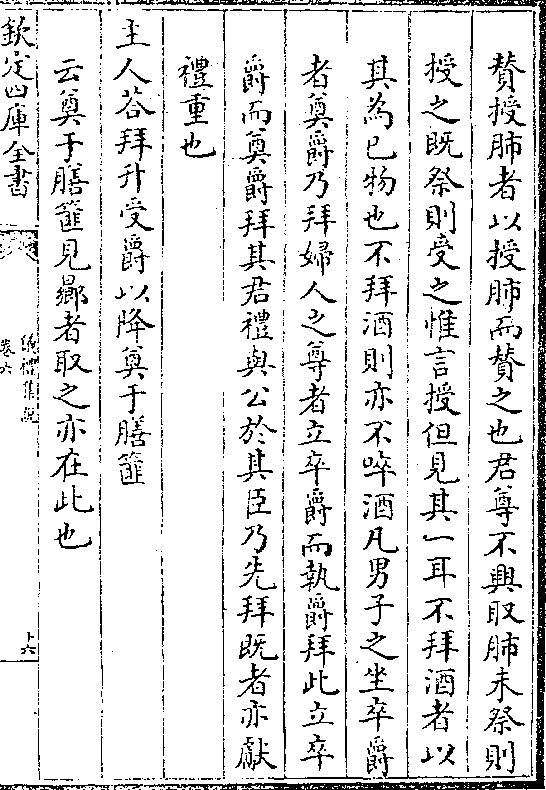 贊授肺者以授肺而贊之也君尊不興取肺未祭則
授之既祭則受之惟言授但見其一耳不拜酒者以
其為已物也不拜酒則亦不啐酒凡男子之坐卒爵
者奠爵乃拜婦人之尊者立卒爵而執爵拜此立卒
爵而奠爵拜其君禮與公於其臣乃先拜既者亦獻
禮重也
主人荅拜升受爵以降奠于膳篚
云奠于膳篚見鄉者取之亦在此也
欽定四庫全書
儀禮集說
卷六
十六